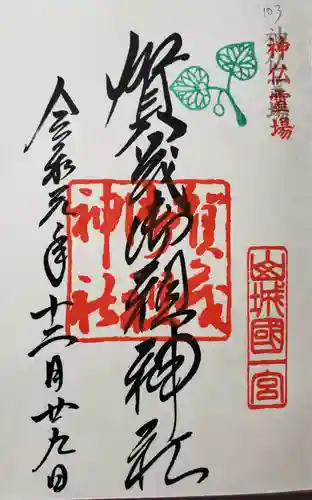 103
神仏霊場
賀茂御祖神社
賀茂
御祖
神社
山城國一宮
令和元年十二月廿九日